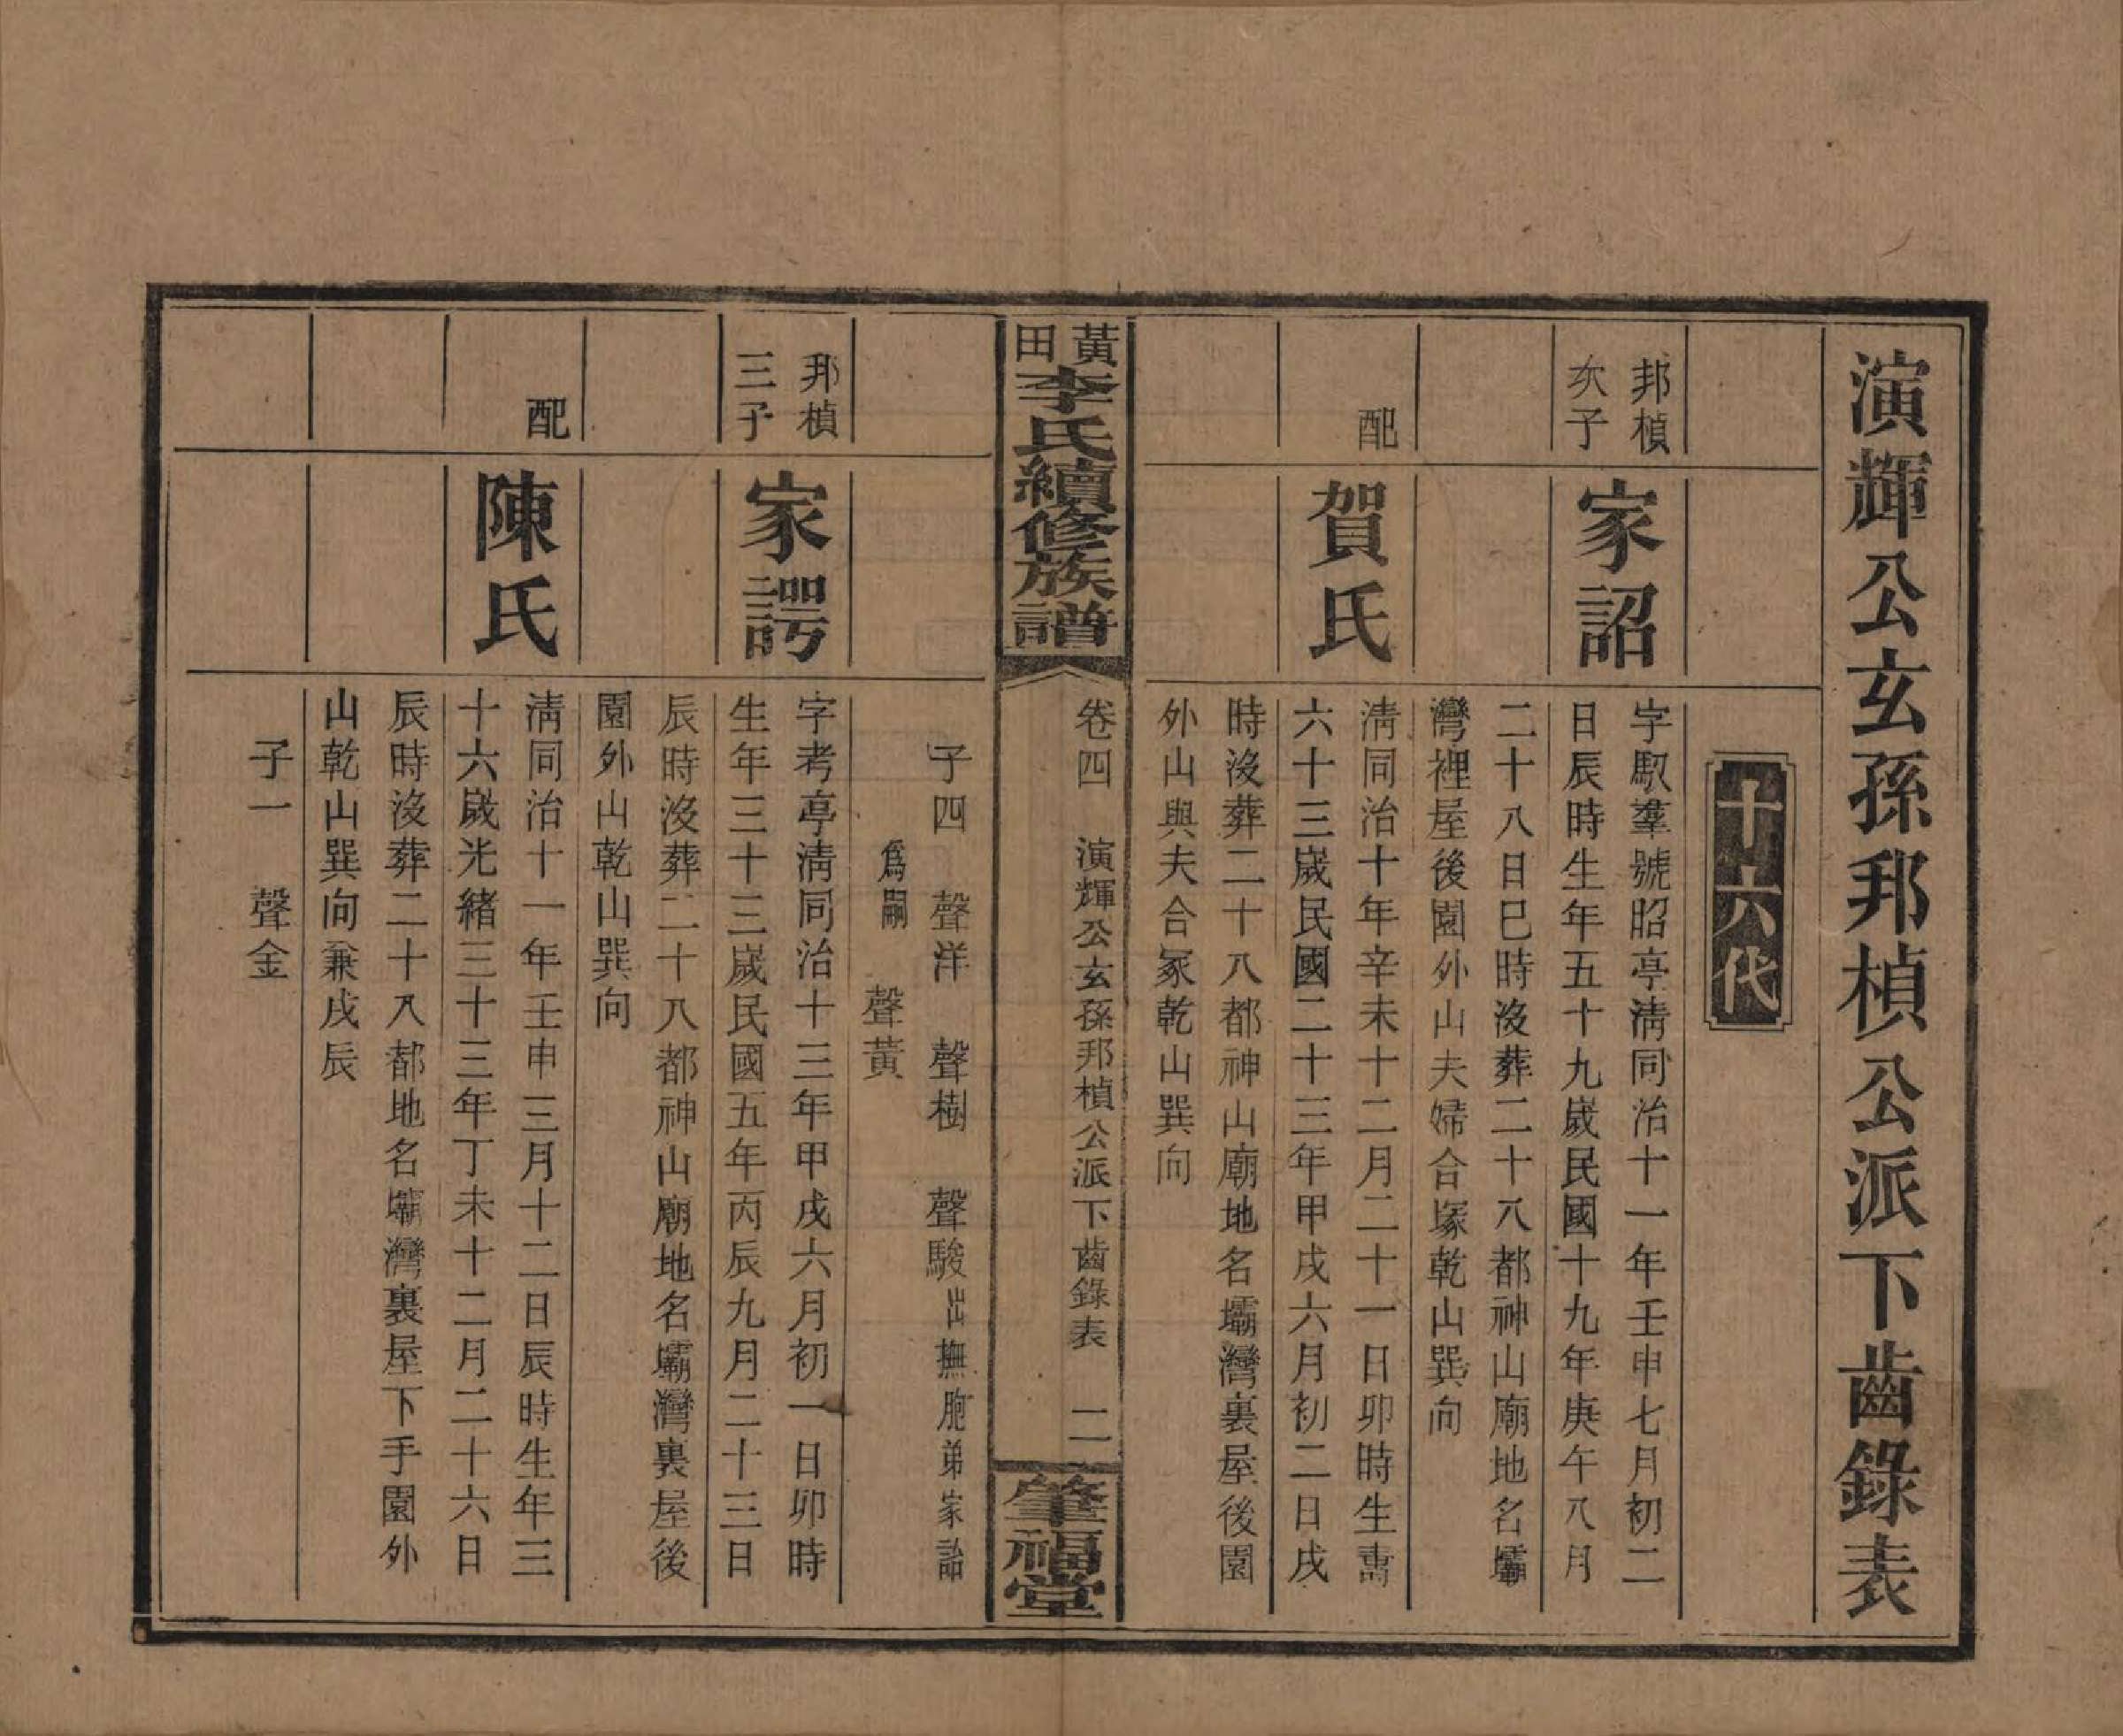 演輝公玄孫邦楨公派下齒錄表
十六代
邦楨
次子
家詔
字馭羣號昭亭淸同治十一年壬申七月初二
日辰時生年五十九歲民國十九年庚午八月
二十八日巳時沒葬二十八都神山廟地名壩
灣裡屋後園外山夫婦合塚乾山巽向
配
賀氏
淸同治十年辛未十二月二十一日卯時生壽
六十三歲民國二十三年甲戌六月初二日戌
時沒葬二十八都神山廟地名壩灣裏屋後園
外山與夫合冢乾山巽向
黃田李氏續修族譜
卷四 演輝公玄孫邦楨公派下齒錄表 二
肇福堂
子四 聲洋 聲樹 聲駿出撫胞弟家諮
爲嗣 聲黃
邦楨
三子
家諤
字考亭淸同治十三年甲戌六月初一日卯時
生年三十三歲民國五年丙辰九月二十三日
辰時沒葬二十八都神山廟地名壩灣裏屋後
園外山乾山巽向
配
陳氏
淸同治十一年壬申三月十二日辰時生年三
十六歲光緒三十三年丁未十二月二十六日
辰時沒葬二十八都地名壩灣裏屋下手園外
山乾山巽向兼戌辰
子一 聲金